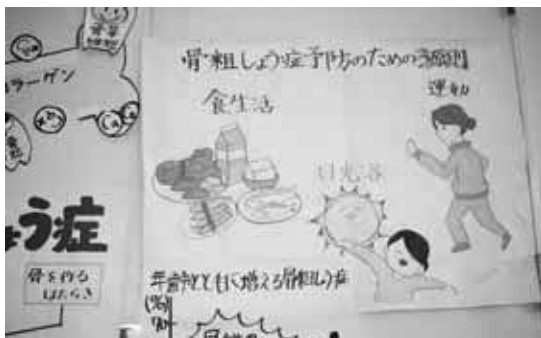 コラーゲン
う症
骨を作る
はたらき
骨粗しょう症予防のための3原則
食生活
運動
日光浴
年齢とともに増える骨粗しょう症
(%)
70